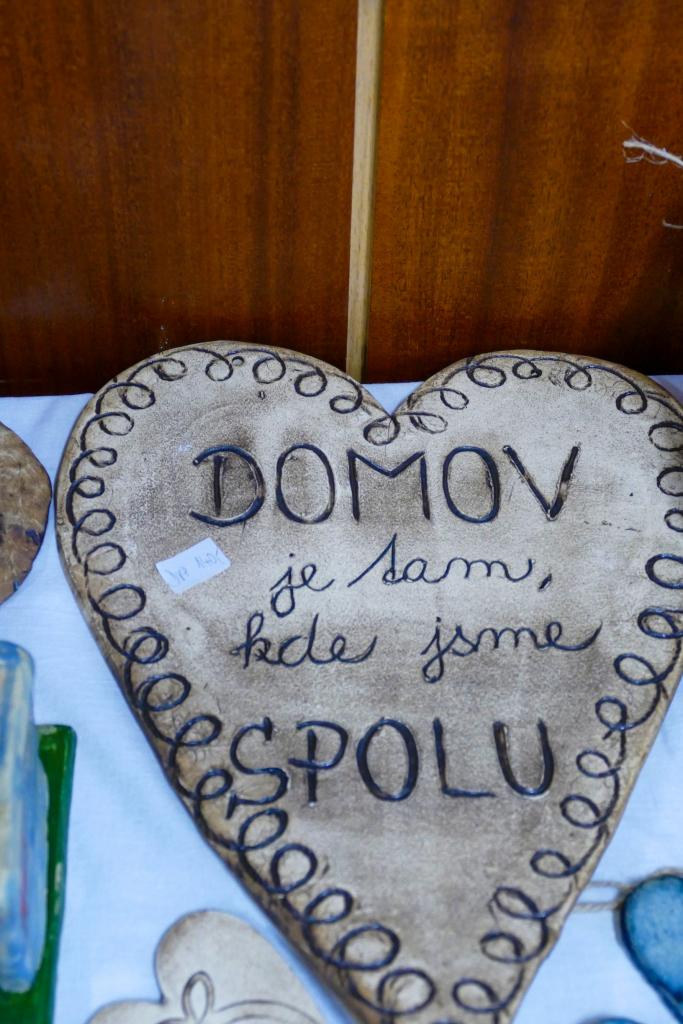 DOMOV
je tam,
kde jsme
SPOLU